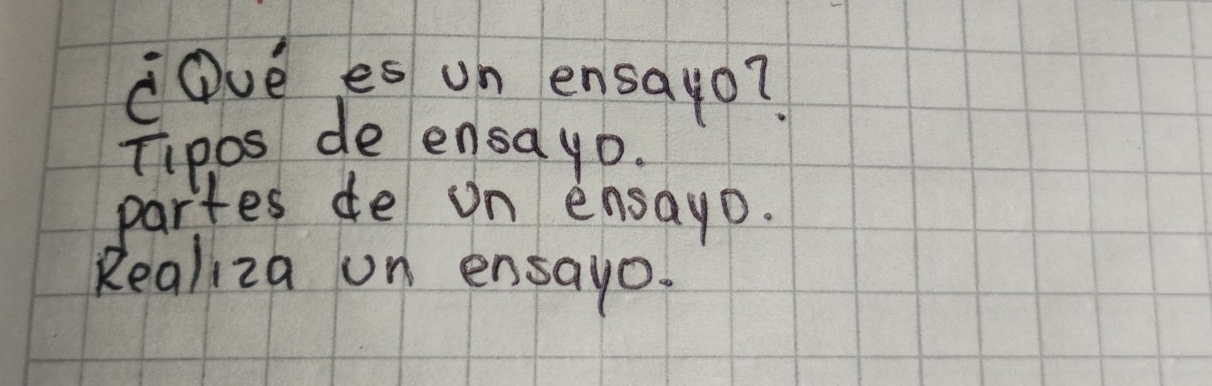 ¿Qué es un ensayo?
Tipos de ensayo.
partes de un ensayo.
Realiza un ensayo.